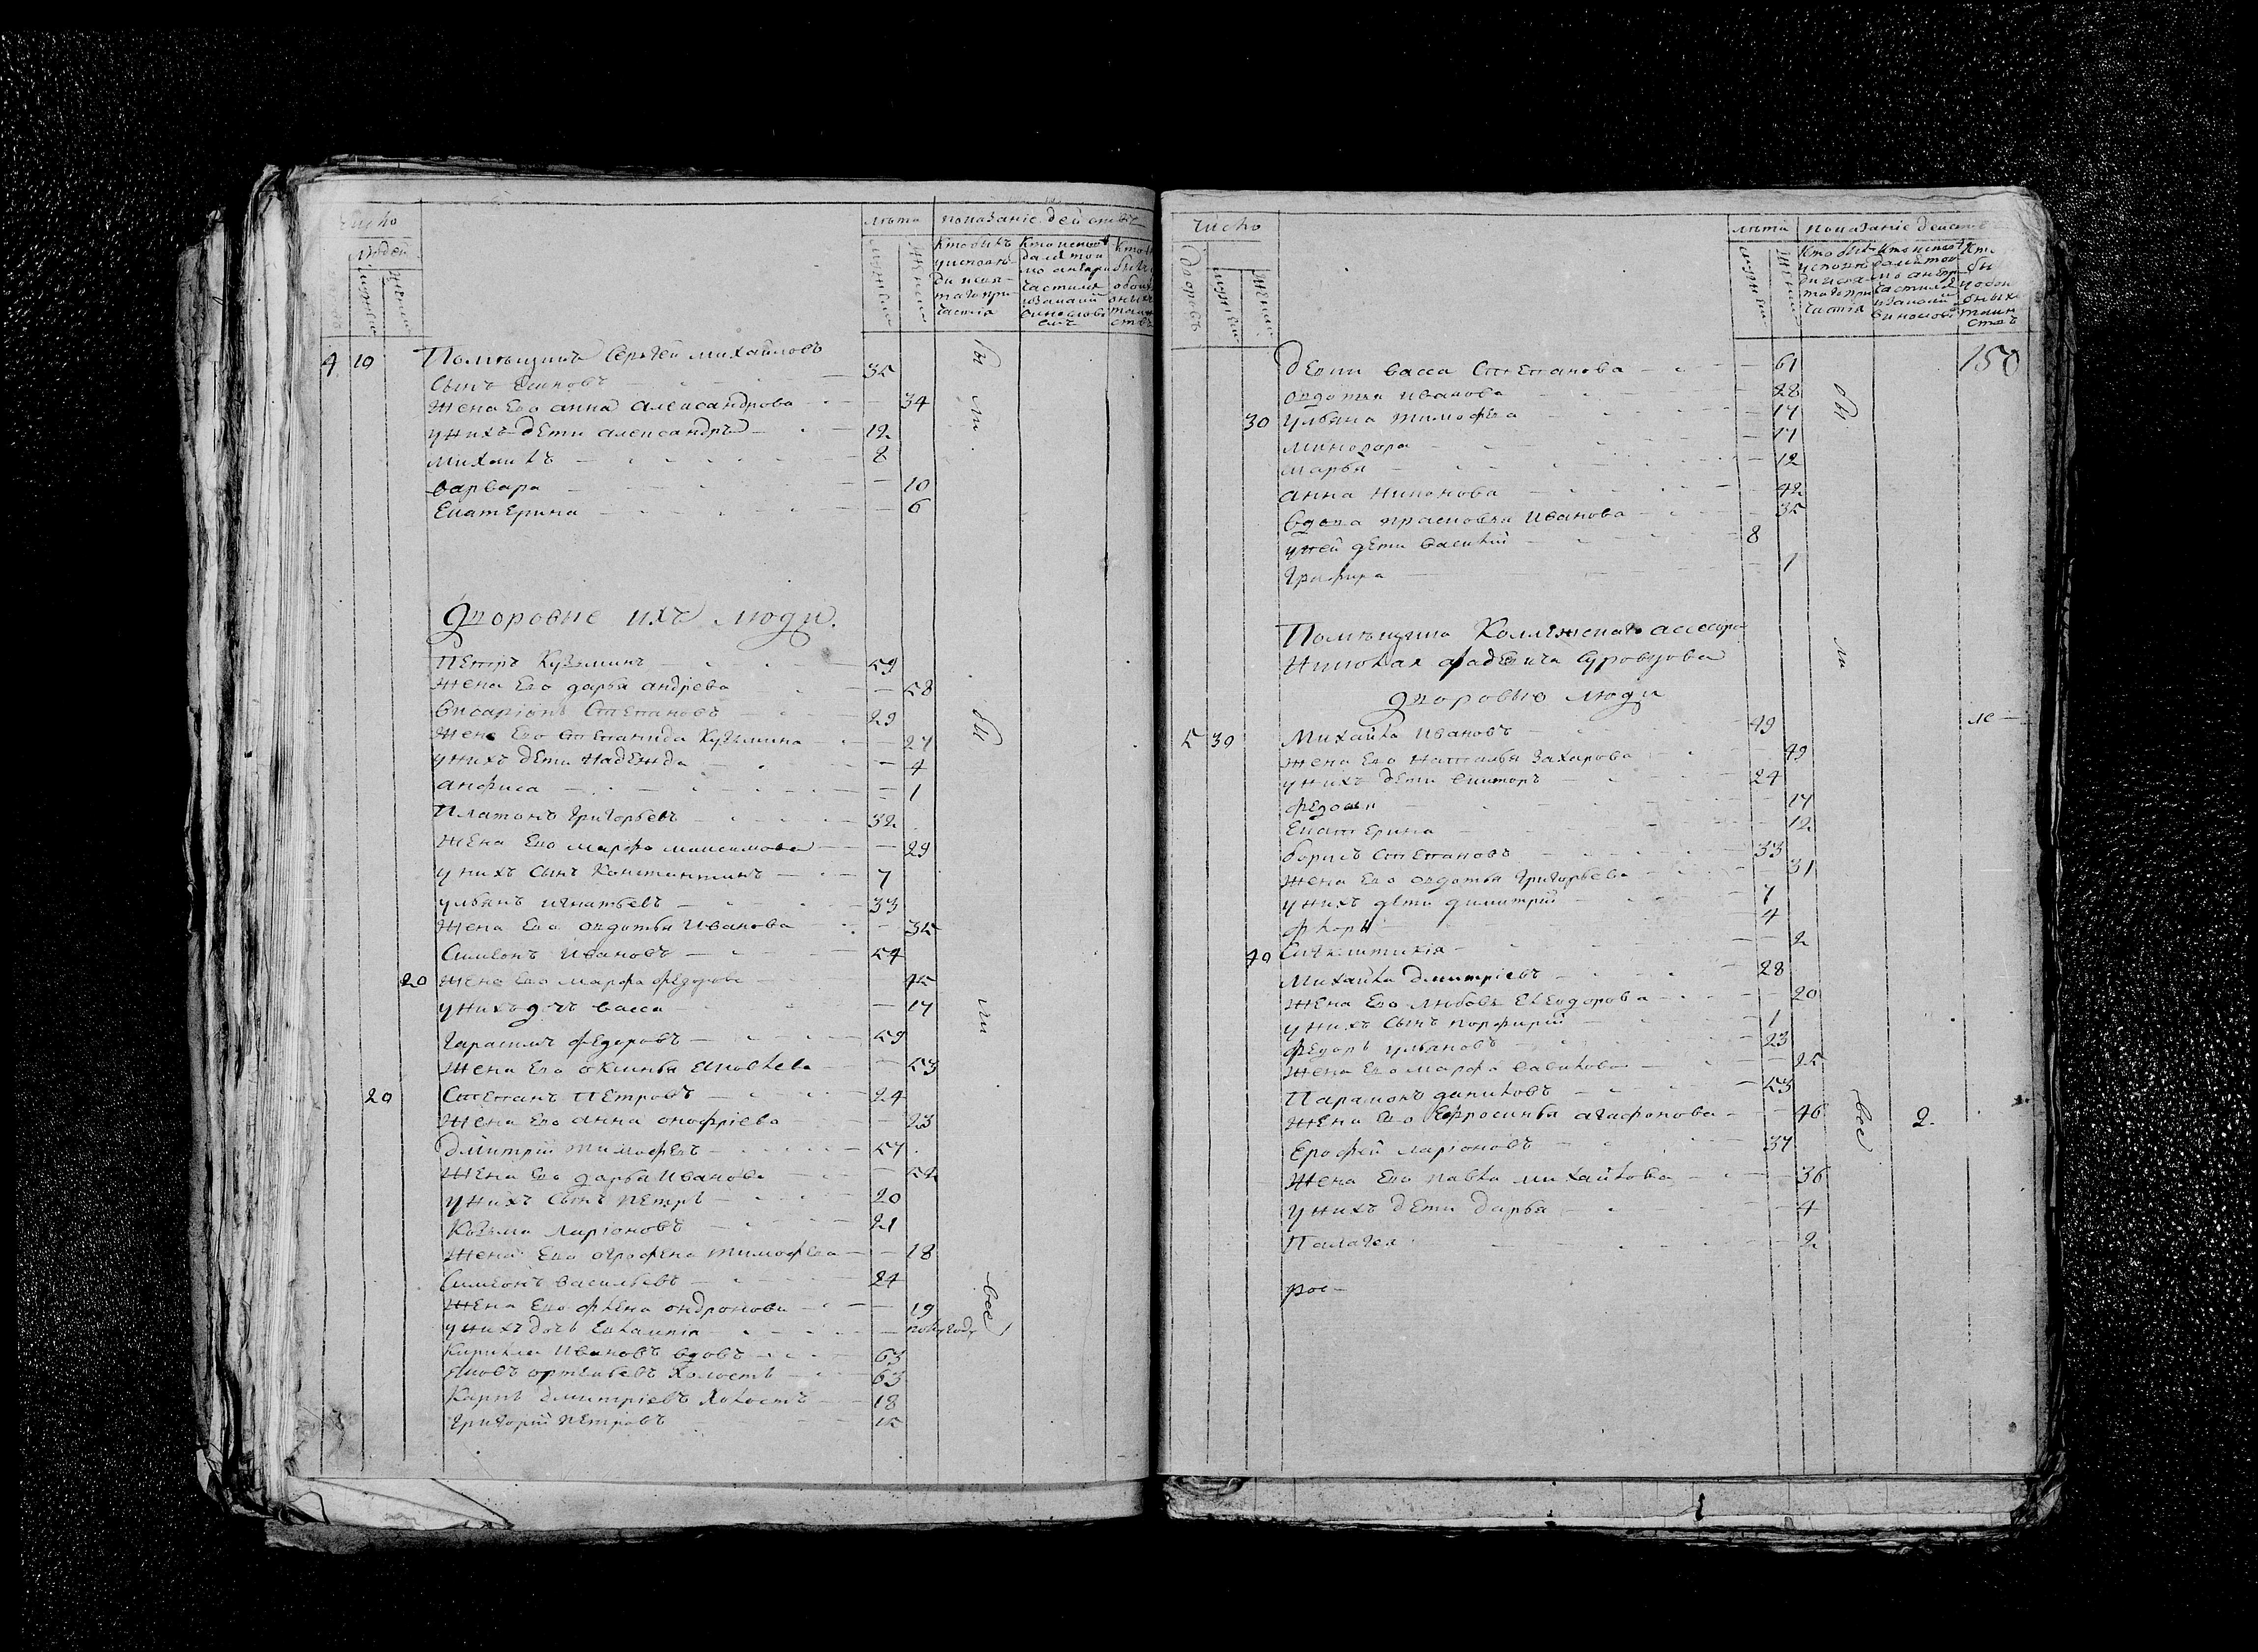 Число
Людей
мужска
женска
лѣта
мужеска
женска
показаніе действ
Кто былъ у исповѣди и свя таго при частія
Кто исповѣ дался той мо а не при частился и за какой винословіемъ
4 10 Помѣщикъ Сергей михайловъ
Сынъ 35
Жена Его анна александрова 34
у нихъ дѣти александръ 12
михаилъ 8
варвара 10
Екатерина 6
дворовые ихъ люди.
Петръ Кузминъ 59
жена Его дарья андрѣева 58
висаріонъ Степановъ 29
жена Его степанида Кузмина 27
у нихъ дѣти надежда 4
анфиса 1
Платонъ григорьевъ 32
жена Его марфа максимова 29
у нихъ сынъ Константинъ 7
ульянъ игнатьевъ 33
жена Его овдотья Иванова 35
Симеонъ Ивановъ 54
20 жена Его марфа федорова 45
у нихъ дочь васса 17
гарасимъ федоровъ 59
жена Его оксинья яковлева 53
20 Степанъ Петровъ 24
жена Его анна онофріева 23
дмитрій тимофѣевъ 57
жена Его дарья Иванова 54
у нихъ сынъ петръ 20
Козьма ларіоновъ 21
жена Его огрофена тимофѣева 18
Симеонъ васильевъ 24
жена Его фѣкла ондронова 19
у нихъ дочь Евлампія полугоду
Кирилла Ивановъ вдовъ 63
яковъ ортемьевъ холостъ 63
Карпъ дмитріевъ холостъ 18
григорій петровъ 15
бы ли
бы ли
все
Число
дворовъ
мужеска
женска
лѣта
мужеска
женска
показаніе действ
150
дѣвки васса Степанова 61
овдотья иванова 28
30 ульяна тимофѣева 17
минодора 17
марья 12
анна никонова 42
вдова прасковья Иванова 35
у ней дѣти василій 8
1
Помѣщика Коллежскаго ассесора
николая фадѣича Суровцова
дворовые люди
5 30 Михайла Ивановъ 49
жена Его наталья Захарова 49
у нихъ дѣти викторъ 24
федосья 17
Екатерина 12
борисъ Степановъ 33
жена Его овдотья григорьева 31
у нихъ дѣти димитрій 7
флоръ 4
40 Синклитикія 2
Михайла дмитріевъ 28
жена Его любовь Ѳеодорова 20
у нихъ сынъ порфирій 1
федоръ ульяновъ 23
жена Его марфа савилова 25
Парамонъ даниловъ 53
жена Его Ефросинья агафонова 46
Ерофей ларіоновъ 37
жена Его павла михайлова 36
у нихъ дѣти дарья 4
Палагея 2
рос-
бы
ли
все
2